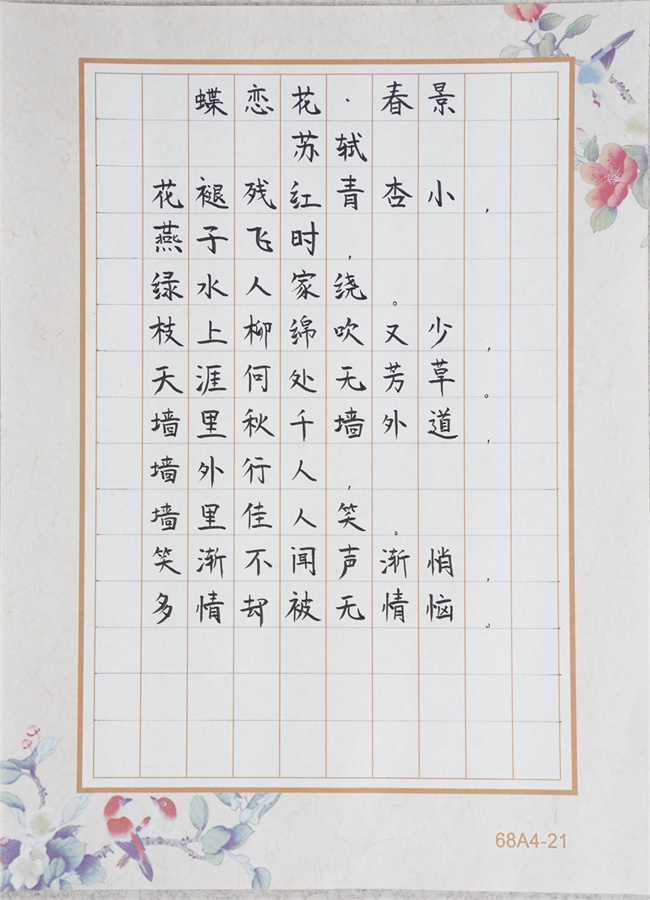 蝶恋花·春景
苏轼
花褪残红青杏小，
燕子飞时，
绿水人家绕。
枝上柳绵吹又少，
天涯何处无芳草。
墙里秋千墙外道，
墙外行人，
墙里佳人笑。
笑渐不闻声渐悄，
多情却被无情恼。
68A4-21